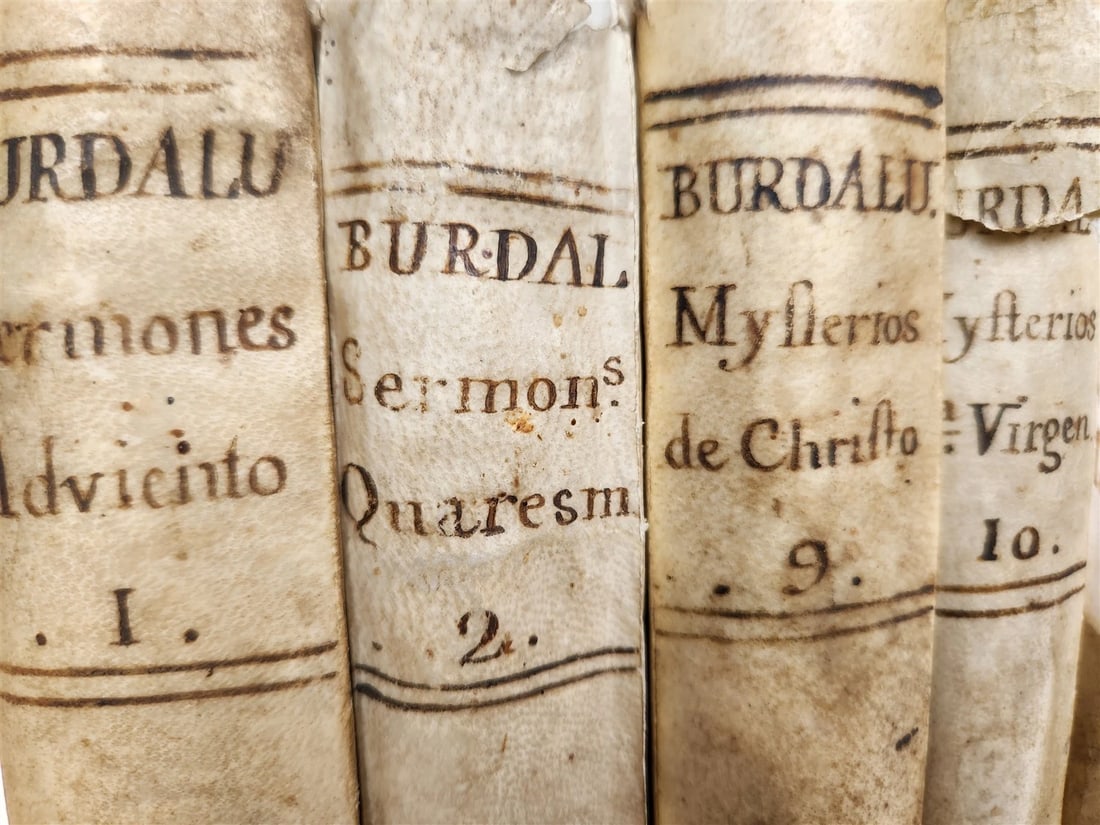 URDALU
ermones
Adviento
. I .
BUR·DAL
Sermonˢ.
Quaresm
. 2 .
BURDALU.
Mysterios
de Christo
. 9 .
URDAL
ysterios
Virgen.
10.